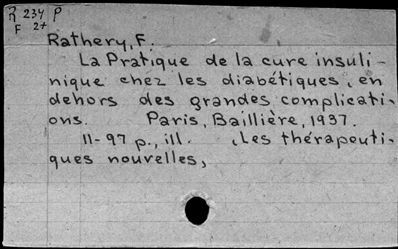 R 234 P
F 27
Rathery, F.
La Pratique de la cure insuli-
nique chez les diabétiques, en
dehors des grandes complicati-
ons. Paris, Baillière, 1937.
11-97 p., ill. (Les thérapeuti-
ques nouvelles,